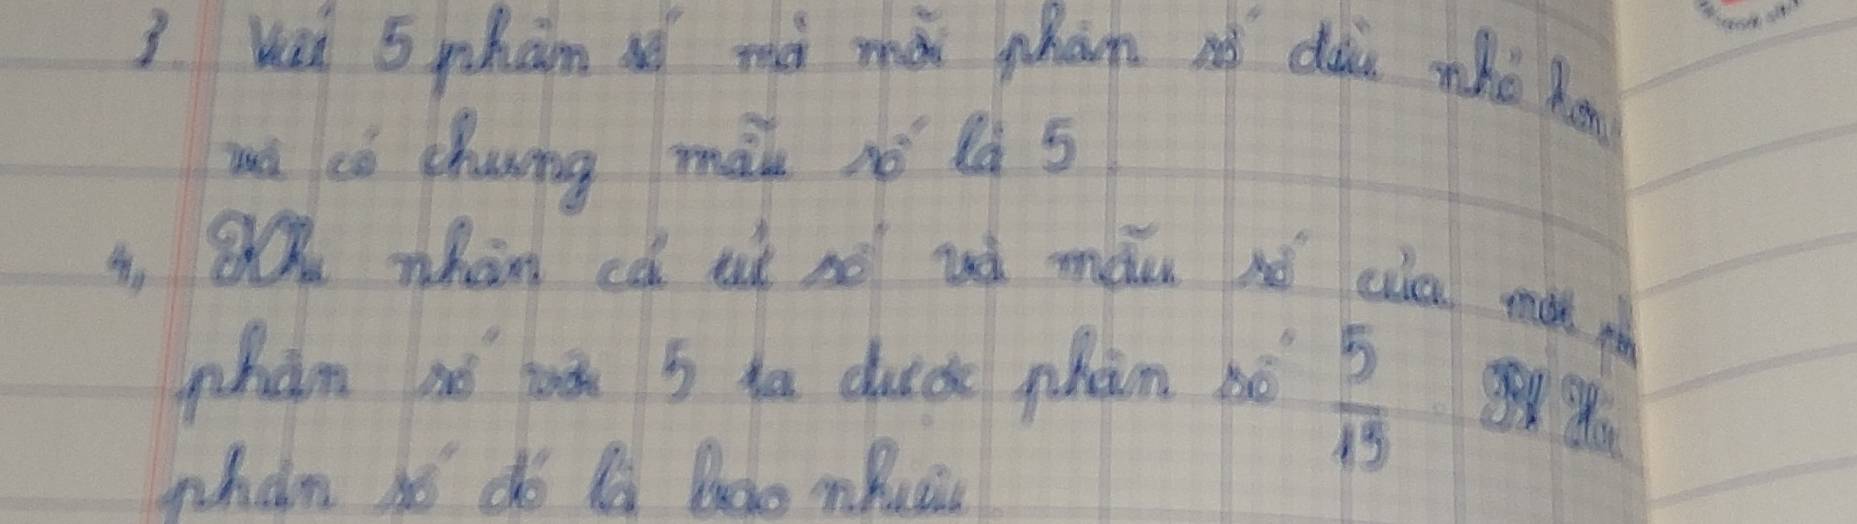 3. Viết 5 phân số mà mỗi phân số đều nhỏ hơn
và có chung mẫu số là 5
4, Khi nhân cả tử số và mẫu số của một
phân số với 5 ta được phân số 5/15. Hỏi
phân số đó là bao nhiêu